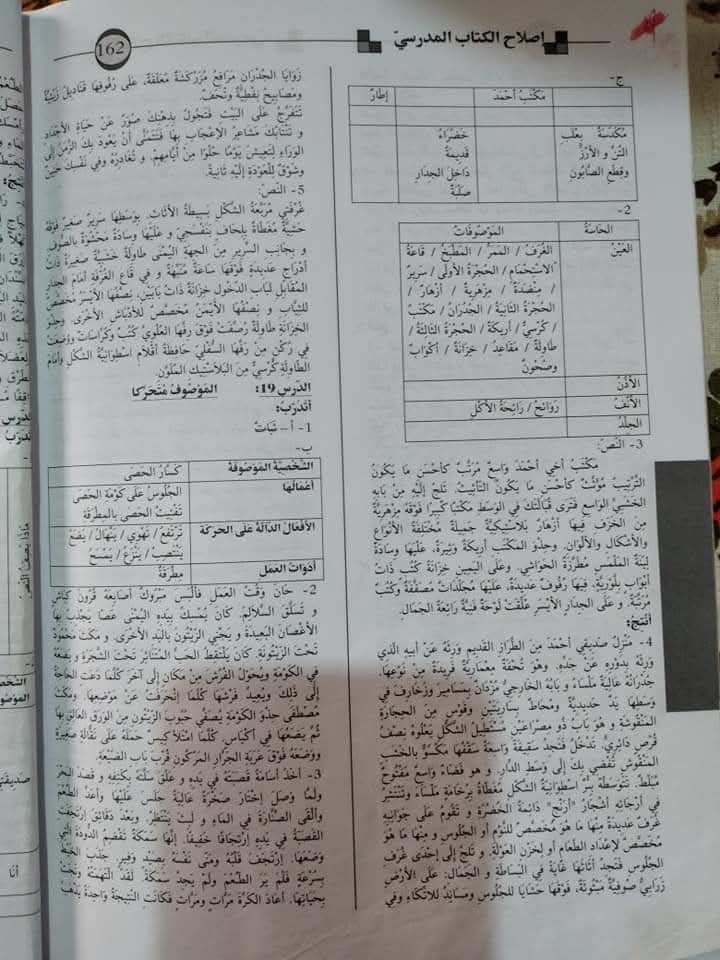 162
إصلاح الكتاب المدرسيّ
ج-
مَكْتَبُ أَحْمَدَ
إِطَارُ
مُكَدَّسَةٌ بِعُلَبِ
التُّنِّ وَ الأَرُزِّ
وَقِطَعِ الصَّابُونِ
خَضْرَاءُ
قَدِيمَةٌ
دَاخِلَ الجِدَارِ
صُلْبَةٌ
2-
الحَاسَّة
المَوْصُوفَات
العَيْنُ
الغُرَفُ / المَمَرُّ / المَطْبَخُ / قَاعَةُ
الاسْتِحْمَامِ / الحُجْرَةُ الأُولَى / سَرِيرٌ
/ مِنْضَدَةٌ / مِزْهَرِيَّةٌ / أَزْهَارٌ /
الحُجْرَةُ الثَّانِيَةُ / الجُدْرَانُ / مَكْتَبٌ
/ كُرْسِيٌّ / أَرِيكَةٌ / الحُجْرَةُ الثَّالِثَةُ /
طَاوِلَةٌ / مَقَاعِدُ / خِزَانَةٌ / أَكْوَابٌ
وَصُحُونٌ
الأُذُنُ
الأَنْفُ
رَوَائِحُ / رَائِحَةُ الأَكْلِ
الجِلْدُ
3- النّصّ:
مَكْتَبُ أَخِي أَحْمَدَ وَاسِعٌ مُرَتَّبٌ كَأَحْسَنِ مَا يَكُونُ
التَّرْتِيبُ مُؤَثَّثٌ كَأَحْسَنِ مَا يَكُونُ التَّأْثِيثُ. تَلِجُ إِلَيْهِ مِنْ بَابِهِ
الخَشَبِيِّ الوَاسِعِ فَتَرَى قُبَالَتَكَ فِي الوَسَطِ مَكْتَبًا كَبِيرًا فَوْقَهُ مِزْهَرِيَّةٌ
مِنَ الخَزَفِ فِيهَا أَزْهَارٌ بِلَاسْتِيكِيَّةٌ جَمِيلَةٌ مُخْتَلِفَةُ الأَنْوَاعِ
وَالأَشْكَالِ وَالأَلْوَانِ. وَحِذْوَ المَكْتَبِ أَرِيكَةٌ وَثِيرَةٌ، عَلَيْهَا وِسَادَةٌ
لَيِّنَةُ المَلْمَسِ مُطَرَّزَةُ الحَوَاشِي. وَعَلَى اليَمِينِ خِزَانَةُ كُتُبٍ ذَاتُ
أَبْوَابٍ بِلَّوْرِيَّةٍ، فِيهَا رُفُوفٌ عَدِيدَةٌ، عَلَيْهَا مُجَلَّدَاتٌ مُصَفَّفَةٌ وَكُتُبٌ
مُرَتَّبَةٌ. وَ عَلَى الجِدَارِ الأَيْسَرِ عُلِّقَتْ لَوْحَةٌ فَنِّيَّةٌ رَائِعَةُ الجَمَالِ.
أُنتج:
4- مَنْزِلُ صَدِيقِي أَحْمَدَ مِنَ الطِّرَازِ القَدِيمِ وَرِثَهُ عَنْ أَبِيهِ الَّذِي
وَرِثَهُ بِدَوْرِهِ عَنْ جَدِّهِ. وَهُوَ تُحْفَةٌ مِعْمَارِيَّةٌ فَرِيدَةٌ مِنْ نَوْعِهَا،
جُدْرَانُهُ عَالِيَةٌ مَلْسَاءُ وَ بَابُهُ الخَارِجِيُّ مُزْدَانٌ بِمَسَامِيرَ وَزَخَارِفَ فِي
وَسَطِهَا يَدٌ حَدِيدِيَّةٌ وَمُحَاطٌ بِسَارِيَتَيْنِ وَقَوْسٍ مِنَ الحِجَارَةِ
المَنْقُوشَةِ وَ هُوَ بَابٌ ذُو مِصْرَاعَيْنِ مُسْتَطِيلُ الشَّكْلِ يَعْلُوهُ نِصْفُ
قُرْصٍ دَائِرِيٍّ. تَدْخُلُ فَتَجِدُ سَقِيفَةً وَاسِعَةً سَقْفُهَا مَكْسُوٌّ بِالخَشَبِ
المَنْقُوشِ تُفْضِي بِكَ إِلَى وَسَطِ الدَّارِ. وَ هُوَ فَضَاءٌ وَاسِعٌ مَفْتُوحٌ
مُبَلَّطٌ. تَتَوَسَّطُهُ بِئْرٌ اسْطِوَانِيَّةُ الشَّكْلِ مُغَطَّاةٌ بِرُخَامَةٍ مَلْسَاءَ وَتَنْتَشِرُ
فِي أَرْجَائِهِ أَشْجَارُ "أَرَنْجٍ" دَائِمَةُ الخُضْرَةِ وَ تَقُومُ عَلَى جَوَانِبِهِ
غُرَفٌ عَدِيدَةٌ مِنْهَا مَا هُوَ مُخَصَّصٌ لِلنَّوْمِ أَوِ الجُلُوسِ وَ مِنْهَا مَا هُوَ
مُخَصَّصٌ لِإِعْدَادِ الطَّعَامِ أَوْ لِخَزْنِ العَوْلَةِ. وَ تَلِجُ إِلَى إِحْدَى غُرَفِ
الجُلُوسِ فَتَجِدُ أَثَاثَهَا غَايَةً فِي البَسَاطَةِ وَ الجَمَالِ: عَلَى الأَرْضِ
زَرَابِيُّ صُوفِيَّةٌ مَبْثُوثَةٌ، فَوْقَهَا حَشَايَا لِلْجُلُوسِ وَمَسَانِدُ لِلاتِّكَاءِ وَفِي
زَوَايَا الجُدْرَانِ مَرَافِعُ مُزَرْكَشَةٌ مُعَلَّقَةٌ، عَلَى رُفُوفِهَا قَنَادِيلُ زَيْتِيَّةٌ
وَمَصَابِيحُ نِفْطِيَّةٌ وَتُحَفٌ.
تَتَفَرَّجُ عَلَى البَيْتِ فَتَجُولُ بِذِهْنِكَ صُوَرٌ عَنْ حَيَاةِ الأَجْدَادِ
وَ تَنْتَابُكَ مَشَاعِرُ الإِعْجَابِ بِهَا فَتَتَمَنَّى أَنْ يَعُودَ بِكَ الزَّمَنُ إِلَى
الوَرَاءِ لِتَعِيشَ يَوْمًا حُلْوًا مِنْ أَيَّامِهِمْ. وَ تُغَادِرُهُ وَفِي نَفْسِكَ حَنِينٌ
وَشَوْقٌ لِلْعَوْدَةِ إِلَيْهِ ثَانِيَةً.
5- النّصّ:
غُرْفَتِي مُرَبَّعَةُ الشَّكْلِ بَسِيطَةُ الأَثَاثِ. يَوَسِطُهَا سَرِيرٌ صَغِيرٌ فَوْقَهُ
حَشِيَّةٌ مُغَطَّاةٌ بِلِحَافٍ بَنَفْسَجِيٍّ وَ عَلَيْهَا وِسَادَةٌ مَحْشُوَّةٌ بِالصُّوفِ
وَ بِجَانِبِ السَّرِيرِ مِنَ الجِهَةِ اليُمْنَى طَاوِلَةٌ خَشَبِيَّةٌ صَغِيرَةٌ ذَاتُ
أَدْرَاجٍ عَدِيدَةٍ فَوْقَهَا سَاعَةٌ مُنَبِّهَةٌ وَ فِي قَاعِ الغُرْفَةِ أَمَامَ الجِدَارِ
المُقَابِلِ لِبَابِ الدُّخُولِ خِزَانَةٌ ذَاتُ بَابَيْنِ، نِصْفُهَا الأَيْسَرُ مُخَصَّصٌ
لِلثِّيَابِ وَ نِصْفُهَا الأَيْمَنُ مُخَصَّصٌ لِلأَدْبَاشِ الأُخْرَى. وَحِذْوَ
الخِزَانَةِ طَاوِلَةٌ رُصِّفَتْ فَوْقَ رَفِّهَا العُلْوِيِّ كُتُبٌ وَكُرَّاسَاتٌ وَوُضِعَتْ
فِي رُكْنٍ مِنْ رَفِّهَا السُّفْلِيِّ حَافِظَةُ أَقْلَامٍ اسْطِوَانِيَّةُ الشَّكْلِ وَأَمَامَ
الطَّاوِلَةِ كُرْسِيٌّ مِنَ البِلَاسْتِيكِ المُلَوَّنِ.
الدّرس 19: الموصُوفُ مُتَحرّكا
أتدرّبُ:
1- أ – ثَبَاتٌ
ب-
الشّخصيّة الموصُوفة
كَسَّارُ الحَصَى
أعمالُها
الجُلُوسُ عَلَى كَوْمَةِ الحَصَى
تَفْتِيتُ الحَصَى بِالمِطْرَقَةِ
الأفعالُ الدّالة على الحركة
تَرْتَفِعُ / تَهْوِي / يَنْهَالُ / يَضَعُ
يَنْتَصِبُ / يَنْزَعُ / يَمْسَحُ
أدواتُ العمل
مِطْرَقَةٌ
2- حَانَ وَقْتُ العَمَلِ فَأَلْبَسَ مَبْرُوكٌ أَصَابِعَهُ قُرُونَ كِبَاشٍ
وَ تَسَلَّقَ السَّلَالِمَ. كَانَ يُمْسِكُ بِيَدِهِ اليُمْنَى عَصًا يَجْذِبُ بِهَا
الأَغْصَانَ البَعِيدَةَ وَ يَجْنِي الزَّيْتُونَ بِاليَدِ الأُخْرَى. وَ مَكَثَ مَحْمُودٌ
تَحْتَ الزَّيْتُونَةِ. كَانَ يَلْتَقِطُ الحَبَّ المُتَنَاثِرَ تَحْتَ الشَّجَرَةِ وَ يَضَعُهُ
فِي الكَوْمَةِ وَيُحَوِّلُ الفُرُشَ مِنْ مَكَانٍ إِلَى آخَرَ كُلَّمَا دَعَتِ الحَاجَةُ
إِلَى ذَلِكَ وَيُعِيدُ فَرْشَهَا كُلَّمَا انْحَرَفَتْ عَنْ مَوْضِعِهَا. وَمَكَثَ
مُصْطَفَى حِذْوَ الكَوْمَةِ يُصَفِّي حُبُوبَ الزَّيْتُونِ مِنَ الوَرَقِ العَالِقِ بِهَا
ثُمَّ يَضَعُهَا فِي أَكْيَاسٍ. كُلَّمَا امْتَلَأَ كِيسٌ حَمَلَهُ عَلَى نَقَّالَةٍ صَغِيرَةٍ
وَوَضَعَهُ فَوْقَ عَرَبَةِ الجَرَّارِ المَرْكُونِ قُرْبَ بَابِ الضَّيْعَةِ.
3- أَخَذَ أُسَامَةُ قَصَبَتَهُ فِي يَدِهِ وَ عَلَّقَ سَلَّتَهُ بِكَتِفِهِ وَ قَصَدَ البَحْرَ
وَلَمَّا وَصَلَ اخْتَارَ صَخْرَةً عَالِيَةً جَلَسَ عَلَيْهَا وَأَعَدَّ الطُّعْمَ
وَأَلْقَى الصِّنَّارَةَ فِي المَاءِ وَ لَبِثَ يَنْتَظِرُ. وَبَعْدَ دَقَائِقَ ارْتَجَفَتْ
القَصَبَةُ فِي يَدِهِ ارْتِجَافًا خَفِيفًا. إِنَّهَا سَمَكَةٌ تَقْضِمُ الدُّودَةَ الَّتِي
وَضَعَهَا. ارْتَجَفَ قَلْبُهُ وَمَنَّى نَفْسَهُ بِصَيْدٍ وَفِيرٍ. جَذَبَ الخَيْطَ
بِسُرْعَةٍ فَلَمْ يَرَ الطُّعْمَ وَلَمْ يَجِدْ سَمَكَةً لَقَدْ التَهَمَتْهُ وَنَجَتْ
بِحَيَاتِهَا. أَعَادَ الكَرَّةَ مَرَّاتٍ وَمَرَّاتٍ فَكَانَتِ النَّتِيجَةُ وَاحِدَةً يَذْهَبُ